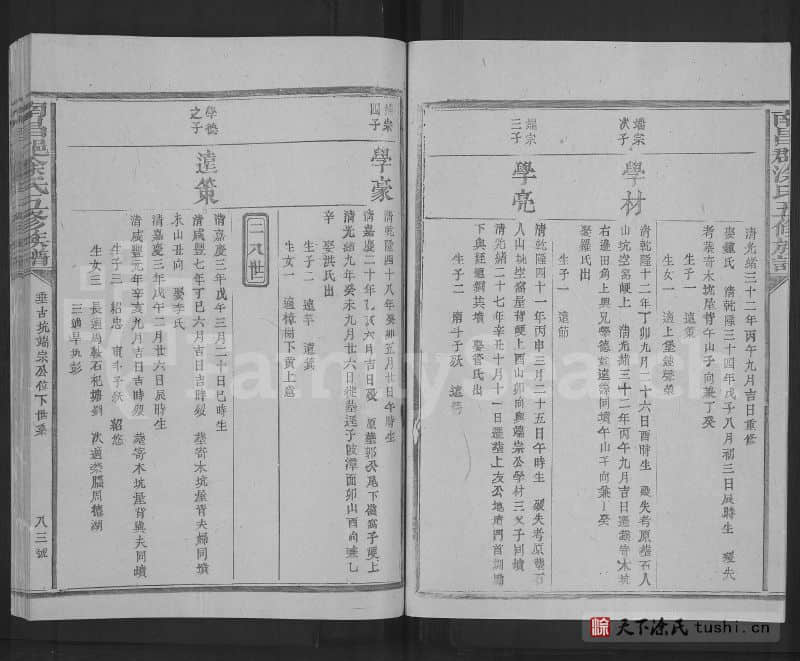 南昌郡涂氏五修族譜
清光緒三十二年丙午九月吉日重修
娶鍾氏 清乾隆三十四年戊子八月初三日辰時生 歿失
考葬寄木坑尾背午山子向兼丁癸
生子一 遠策
生女一 適上堡
端宗次子
學材
清乾隆十二年丁卯九月二十六日酉時生 歿失考原葬石人
山坑空窩埂上 清光緒三十二年丙午九月吉日遷葬寄木坑
右邊田角上與兄學德 遠 同墳午山子向兼丁癸
娶羅氏出
生子一 遠節
端宗三子
學亮
清乾隆四十一年丙申三月二十五日午時生 歿失考原葬石
人山坑空窩屋背埂上酉山卯向與端崇公學材三父子同墳
清光緒二十七年辛丑十月十一日遷葬上
下與 共墳 娶 氏出
生子二
端宗四子
學豪
清乾隆四十八年癸卯五月廿日子時生
清嘉慶二十年 六月吉日歿 原葬郭公尾下 窩子埂上
清光緒九年癸未九月廿六日 遷子陂潭面卯山酉向兼乙
辛 娶洪氏出
生子二 遠平 遠
生女一 適樟樹下黃上處
二八世
學德之子
遠策
清嘉慶三年戊午三月二十日巳時生
清咸豐七年丁巳六月吉日吉時歿 葬寄木坑屋背夫婦同墳
未山丑向 娶李氏
清嘉慶三年戊午二月廿六日辰時生
清咸豐元年辛亥九月吉日吉時歿 葬寄木坑屋背與夫同墳
生子三 紹忠 南斗子妖 紹悠
生女三 長適馬鞍石杞塘劉 次適 周德湖
三適旱
垂古坑端宗公位下世系
八三號
南昌郡涂氏五修族譜
涂 天下涂氏 tushi.cn